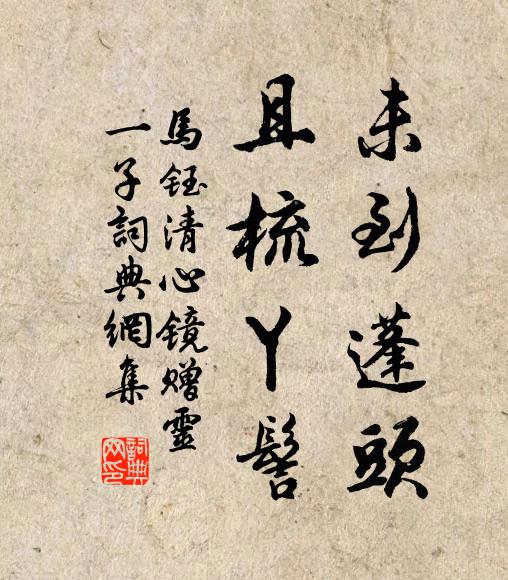 未到蓬頭
且梳丫髻
馬鈺清心鏡贈靈
一子詞典網集
詞典
网印